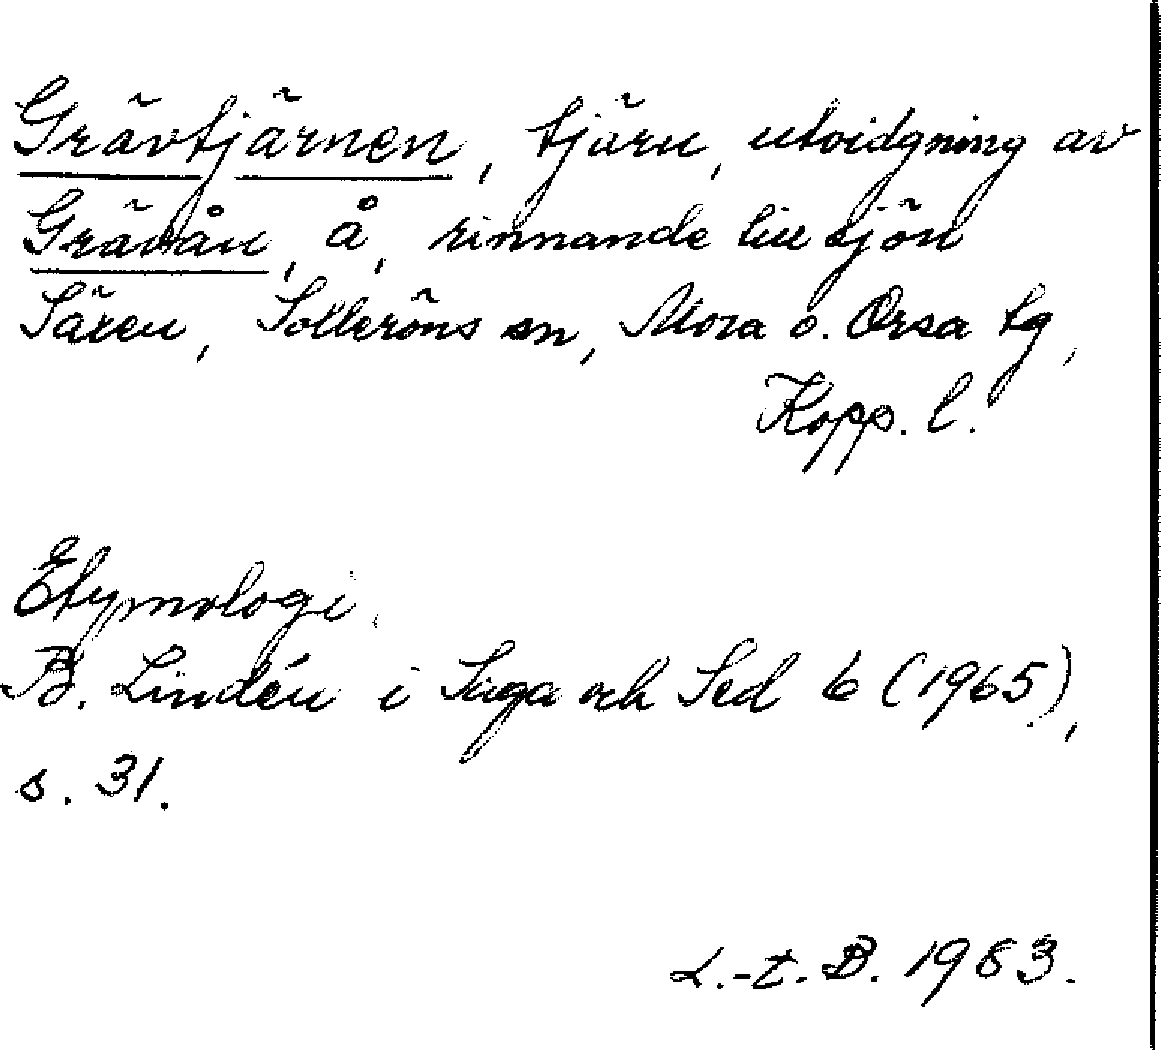 Grävtjärnen, tjärn, utvidgning av
Grävån, å, rinnande till sjön
Sären, Solleröns sn, Mora o. Orsa tg,
Kopp. l.
Etymologi.
B. Lindén i Saga och Sed 6 (1965),
s. 31.
L.-t. B. 1983.